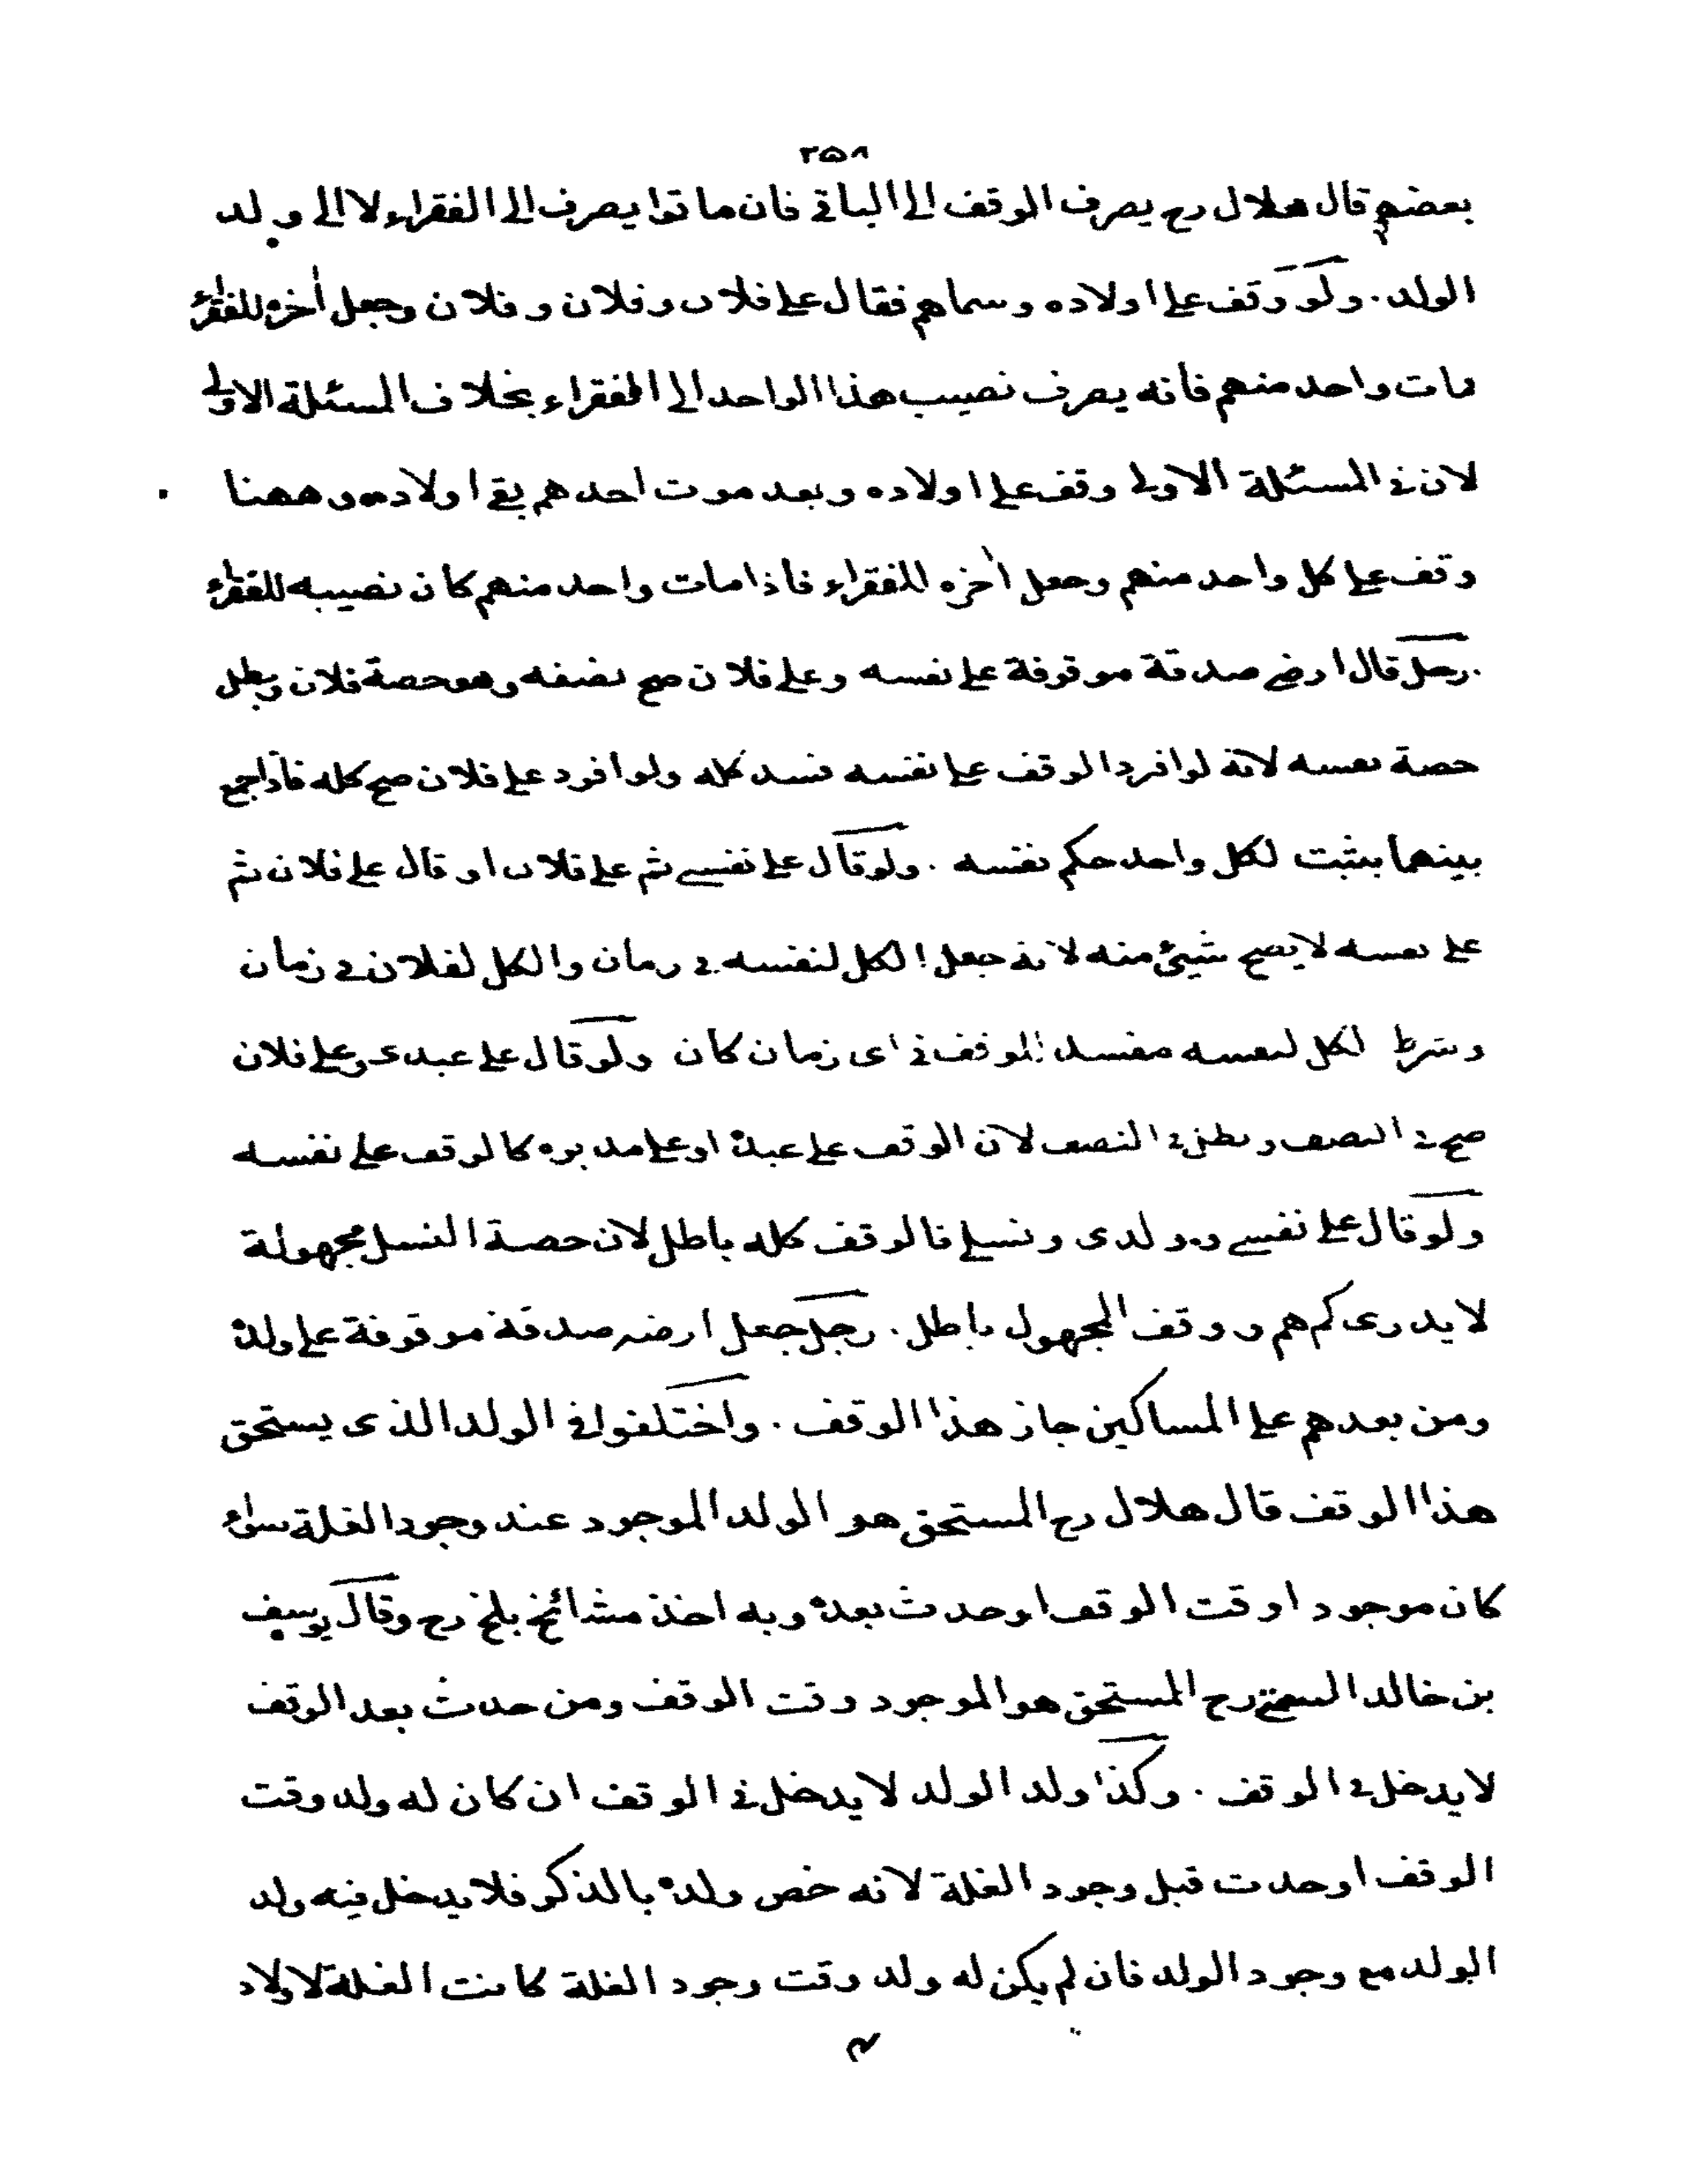 ٢٥٨
بعضهم قال هلال رح يصرف الوقف الى الباقي فان ماتوا يصرف الى الفقراء لا الى ولد
الولد . ولو وقف على اولاده وسماهم فقال على فلان وفلان وفلان وجعل اخره للفقراء
مات واحد منهم فانه يصرف نصيب هذا الواحد الى الفقراء بخلاف المسئلة الاولى
لان في المسئلة الاولى وقف على اولاده وبعد موت احدهم بقي اولاده وههنا
وقف على كل واحد منهم وجعل اخره للفقراء فاذا مات واحد منهم كان نصيبه للفقراء
. رجل قال ارضي صدقة موقوفة على نفسه وعلى فلان صح نصفه وهو حصة فلان وبطل
حصة نفسه لانه لو افرد الوقف على نفسه فسد كله ولو افرد على فلان صح كله فاذا جمع
بينهما يثبت لكل واحد حكم نفسه . ولو قال على نفسي ثم على فلان او قال على فلان ثم
على نفسه لا يصح شيئ منه لانه جعل الكل لنفسه في زمان والكل لفلان في زمان
وشرط لكل لنفسه مفسد للوقف في اى زمان كان ولو قال على عبدى وعلى فلان
صح في النصف وبطل في النصف لان الوقف على عبده او على مدبره كالوقف على نفسه
ولو قال على نفسي وولدى ونسلي فالوقف كله باطل لان حصة النسل مجهولة
لا يدرى كم هم ووقف المجهول باطل . رجل جعل ارضه صدقة موقوفة على ولده
ومن بعدهم على المساكين جاز هذا الوقف . واختلفوا في الولد الذى يستحق
هذا الوقف قال هلال رح المستحق هو الولد الموجود عند وجود الغلة سواء
كان موجودا وقت الوقف او حدث بعده وبه اخذ مشائخ بلخ رح وقال يوسف
بن خالد السمتي رح المستحق هو الموجود وقت الوقف ومن حدث بعد الوقف
لا يدخل في الوقف . وكذا ولد الولد لا يدخل في الوقف ان كان له ولد وقت
الوقف او حدث قبل وجود الغلة لانه خص ولده بالذكر فلا يدخل فيه ولد
الولد مع وجود الولد فان لم يكن له ولد وقت وجود الغلة كانت الغلة لاولاد